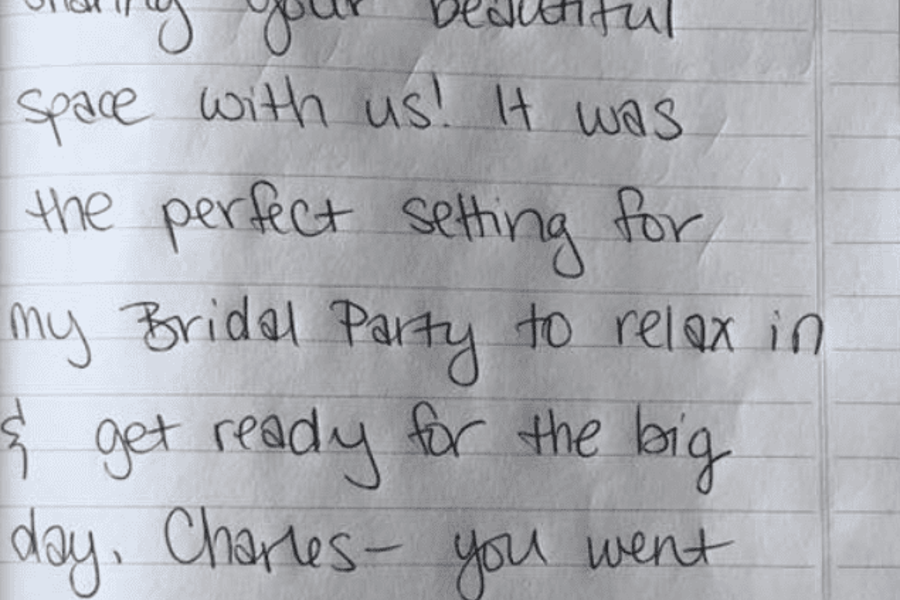 sharing your beautiful
space with us! It was
the perfect setting for
my Bridal Party to relax in
& get ready for the big
day. Charles- you went